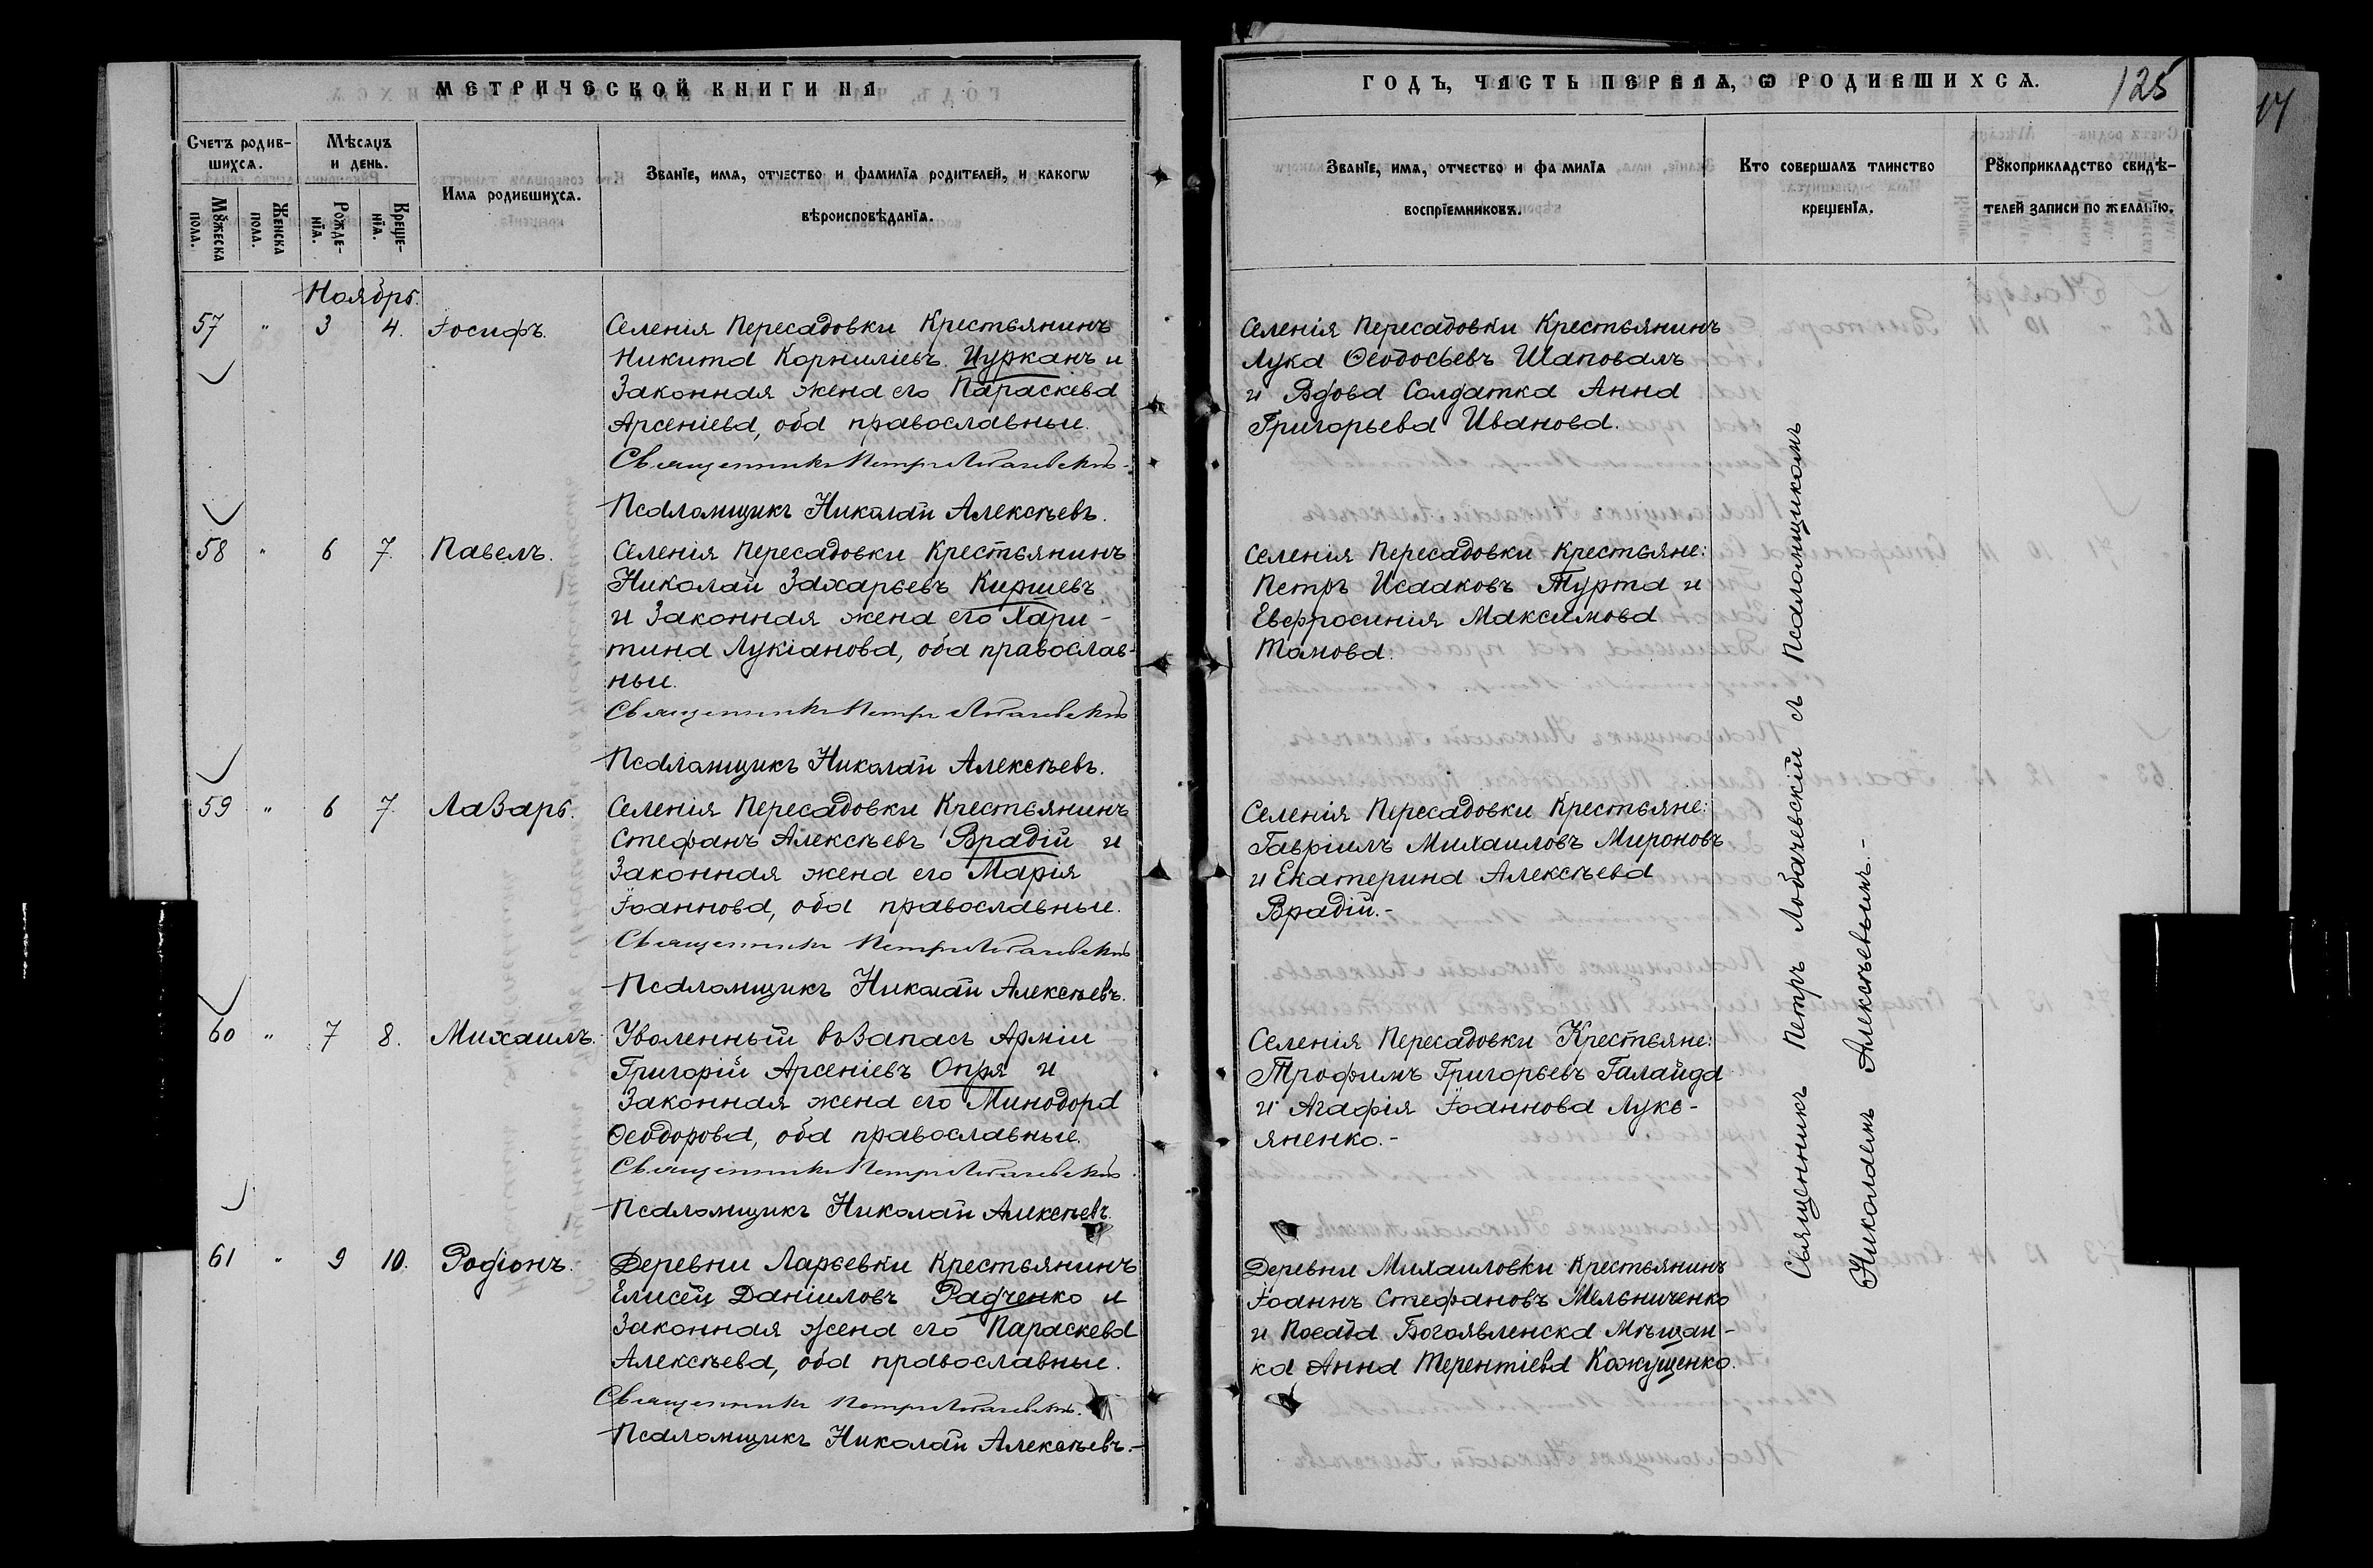 МЕТРИЧЕСКОЙ КНИГИ НА
Счетъ родив-
шихсѧ.
Мѣсѧцъ
и день.
Мꙋжеска
пола.
Женска
пола.
Рожде-
нїѧ.
Креще-
нїѧ.
Имѧ родившихсѧ.
Званїе, имѧ, отчество и фамилїѧ родителей, и какогѡ
вѣроисповѣданїѧ.
Ноябрь.
57 " 3 4. Іосифъ.
Селенія Пересадовки Крестьянинъ
Никита Корниліевъ Цурканъ и
Законная жена его Параскева
Арсеніева, оба православные.
Священникъ Петръ Лобачевскій.
Псаломщикъ Николай Алексѣевъ.
58 " 6 7. Павелъ.
Селенія Пересадовки Крестьянинъ
Николай Захарьевъ Киршевъ
и Законная жена его Хари-
тина Лукіанова, оба православ-
ные.
Священникъ Петръ Лобачевскій
Псаломщикъ Николай Алексѣевъ.
59 " 6 7. Лазарь.
Селенія Пересадовки Крестьянинъ
Стефанъ Алексѣевъ Врадій и
Законная жена его Марія
Іоаннова, оба православные.
Священникъ Петръ Лобачевскій
Псаломщикъ Николай Алексѣевъ.
60 " 7 8. Михаилъ.
Уволенный въ Запасъ Арміи
Григорій Арсеніевъ Опря и
Законная жена его Минодора
Ѳеодорова, оба православные.
Священникъ Петръ Лобачевскій.
Псаломщикъ Николай Алексѣевъ.
61 " 9 10. Родіонъ.
Деревни Ларьевки Крестьянинъ
Елисей Даніиловъ Радченко и
Законная жена его Параскева
Алексѣева, оба православные.
Священникъ Петръ Лобачевскій.
Псаломщикъ Николай Алексѣевъ.-
ГОДЪ, ЧАСТЬ ПЕРВАѦ, Ѡ РОДИВШИХСѦ.
125
Званїе, имѧ, отчество и фамилїѧ
воспрїемниковъ.
Кто совершалъ таинство
крещенїѧ.
Рꙋкоприкладство свидѣ-
телей записи по желанїю.
Селенія Пересадовки Крестьянинъ
Лука Ѳеодосьевъ Шаповалъ
и Вдова Солдатка Анна
Григорьева Иванова.
Селенія Пересадовки Крестьяне:
Петръ Исааковъ Турта и
Евфросинія Максимова
Томова.
Селенія Пересадовки Крестьяне:
Гавріилъ Михаиловъ Мироновъ
и Екатерина Алексѣева
Врадій.-
Селенія Пересадовки Крестьяне:
Трофимъ Григорьевъ Галайда
и Агафія Іоаннова Лукь-
яненко.-
Деревни Михаиловки Крестьянинъ
Іоаннъ Стефановъ Мельниченко
и Посада Богоявленска Мѣщан-
ка Анна Терентіева Кожущенко.
Священникъ Петръ Лобачевскій съ Псаломщикомъ
Николаемъ Алексѣевымъ.-